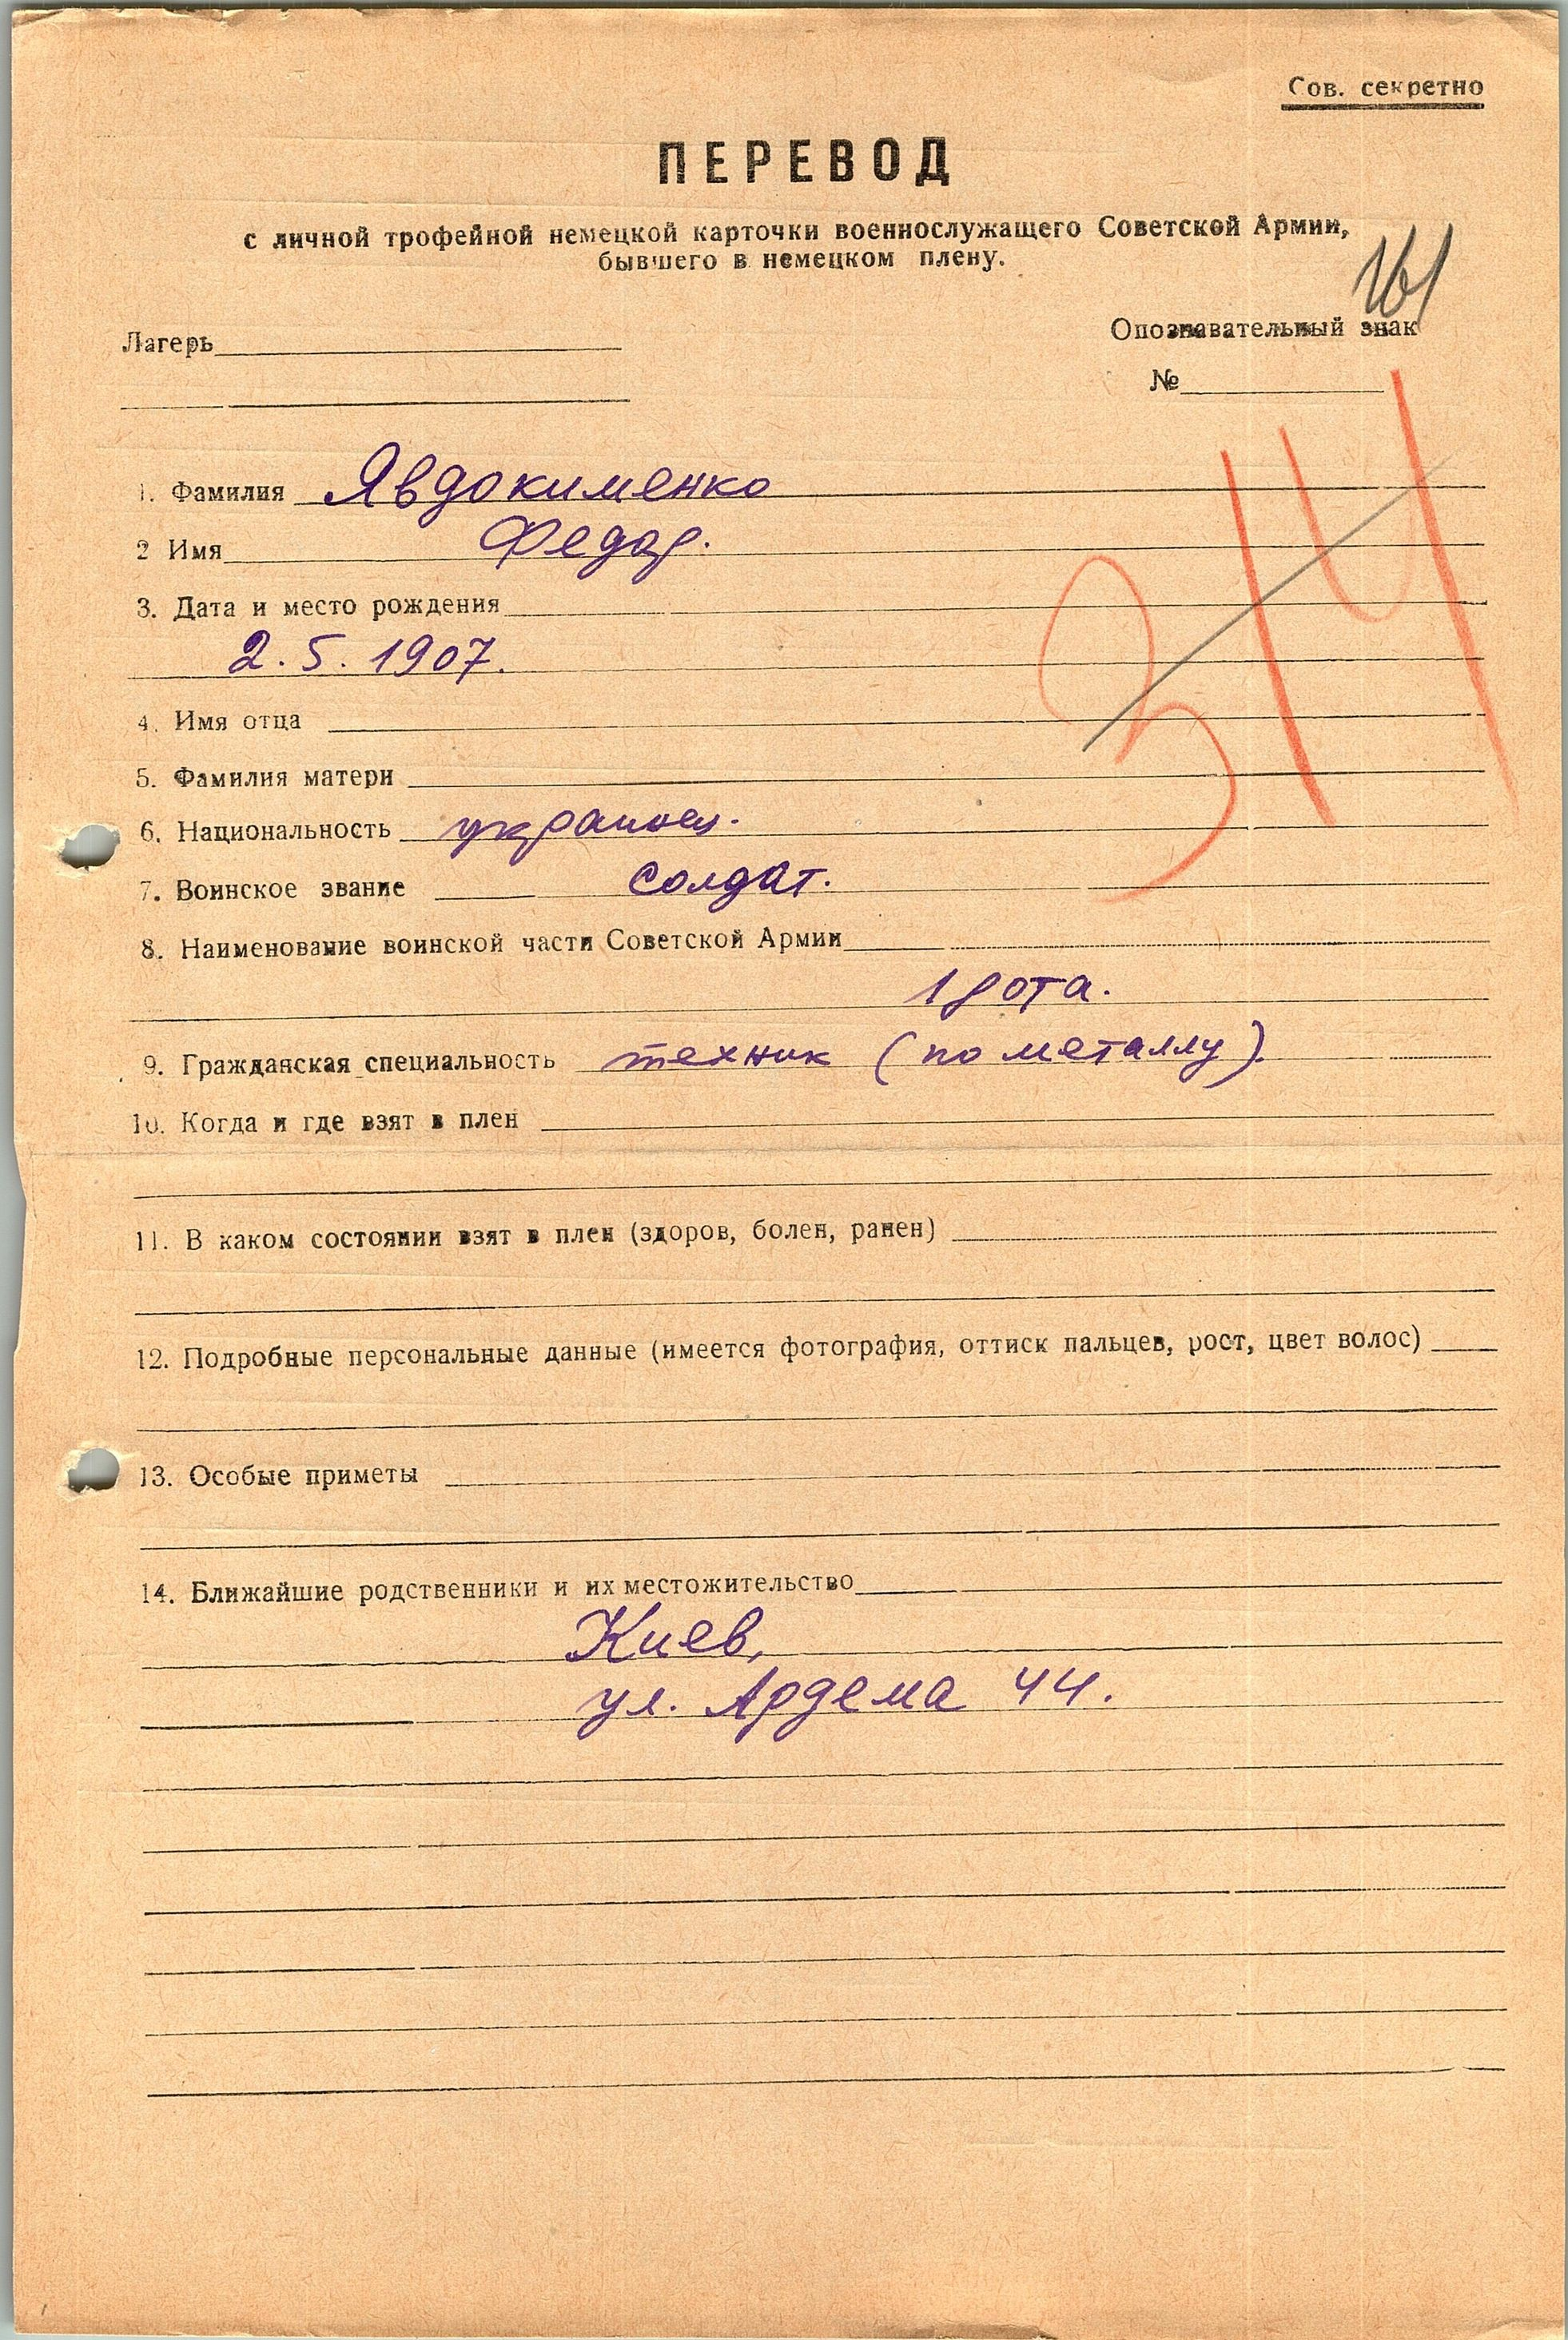 Сов. секретно
ПЕРЕВОД
с личной трофейной немецкой карточки военнослужащего Советской Армии,
бывшего в немецком плену.
161
Лагерь
Опознавательный знак
№
1. Фамилия Явдокименко
2 Имя Федор.
3. Дата и место рождения
2. 5. 1907.
314
4. Имя отца
5. Фамилия матери
6. Национальность украинец.
7. Воинское звание солдат.
8. Наименование воинской части Советской Армии
1 рота.
9. Гражданская специальность техник (по металлу).
10. Когда и где взят в плен
11. В каком состоянии взят в плен (здоров, болен, ранен)
12. Подробные персональные данные (имеется фотография, оттиск пальцев, рост, цвет волос)
13. Особые приметы
14. Ближайшие родственники и их местожительство
Киев,
ул. Ардема 44.